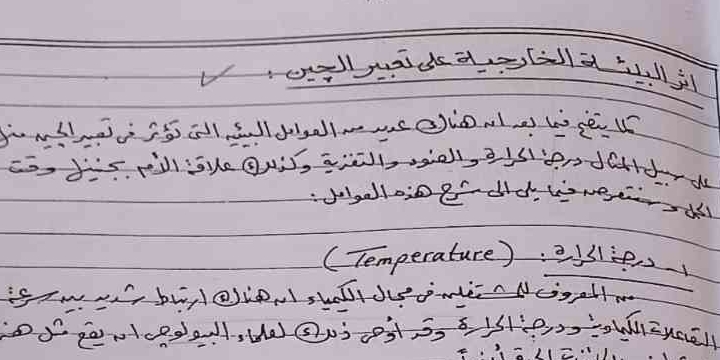 اثر البيئة الخارجية على تعبير الجين :
كما يتضح فيما بعد ان هناك عديد من العوامل البيئية التى تؤثر فى تعبير الجين مثل
على سبيل المثال درجة الحرارة والضوء والتغذية وكذلك علاقة الأم بجنينها وقت
الحمل وسنتعرض فيما يلى الى شرح هذه العوامل :
١- درجة الحرارة : (Temperature)
من المعروف للمشتغلين فى مجال الكيمياء ان هناك ارتباط شديد بين سرعة
التفاعلات الكيماوية ودرجة الحرارة وقد أوضح ذلك لعلماء البيولوجى ان يقع مثل هذ